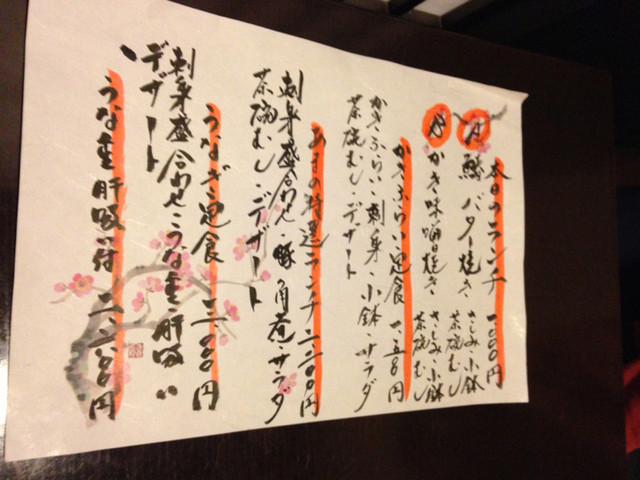 本日のランチ 一、〇〇〇円
A 鱈バター焼き さしみ・小鉢 茶碗むし
かき味噌焼き さしみ・小鉢 茶碗むし
かきふらい定食 一、二五〇円
かきふらい・刺身・小鉢・サラダ
茶碗むし・デザート
特選ランチ 二、二〇〇円
刺身盛合わせ・豚角煮・サラダ
茶碗むし・デザート
うなぎ定食
刺身盛合わせ・うな重・肝吸い
・デザート
うな重 肝吸い付